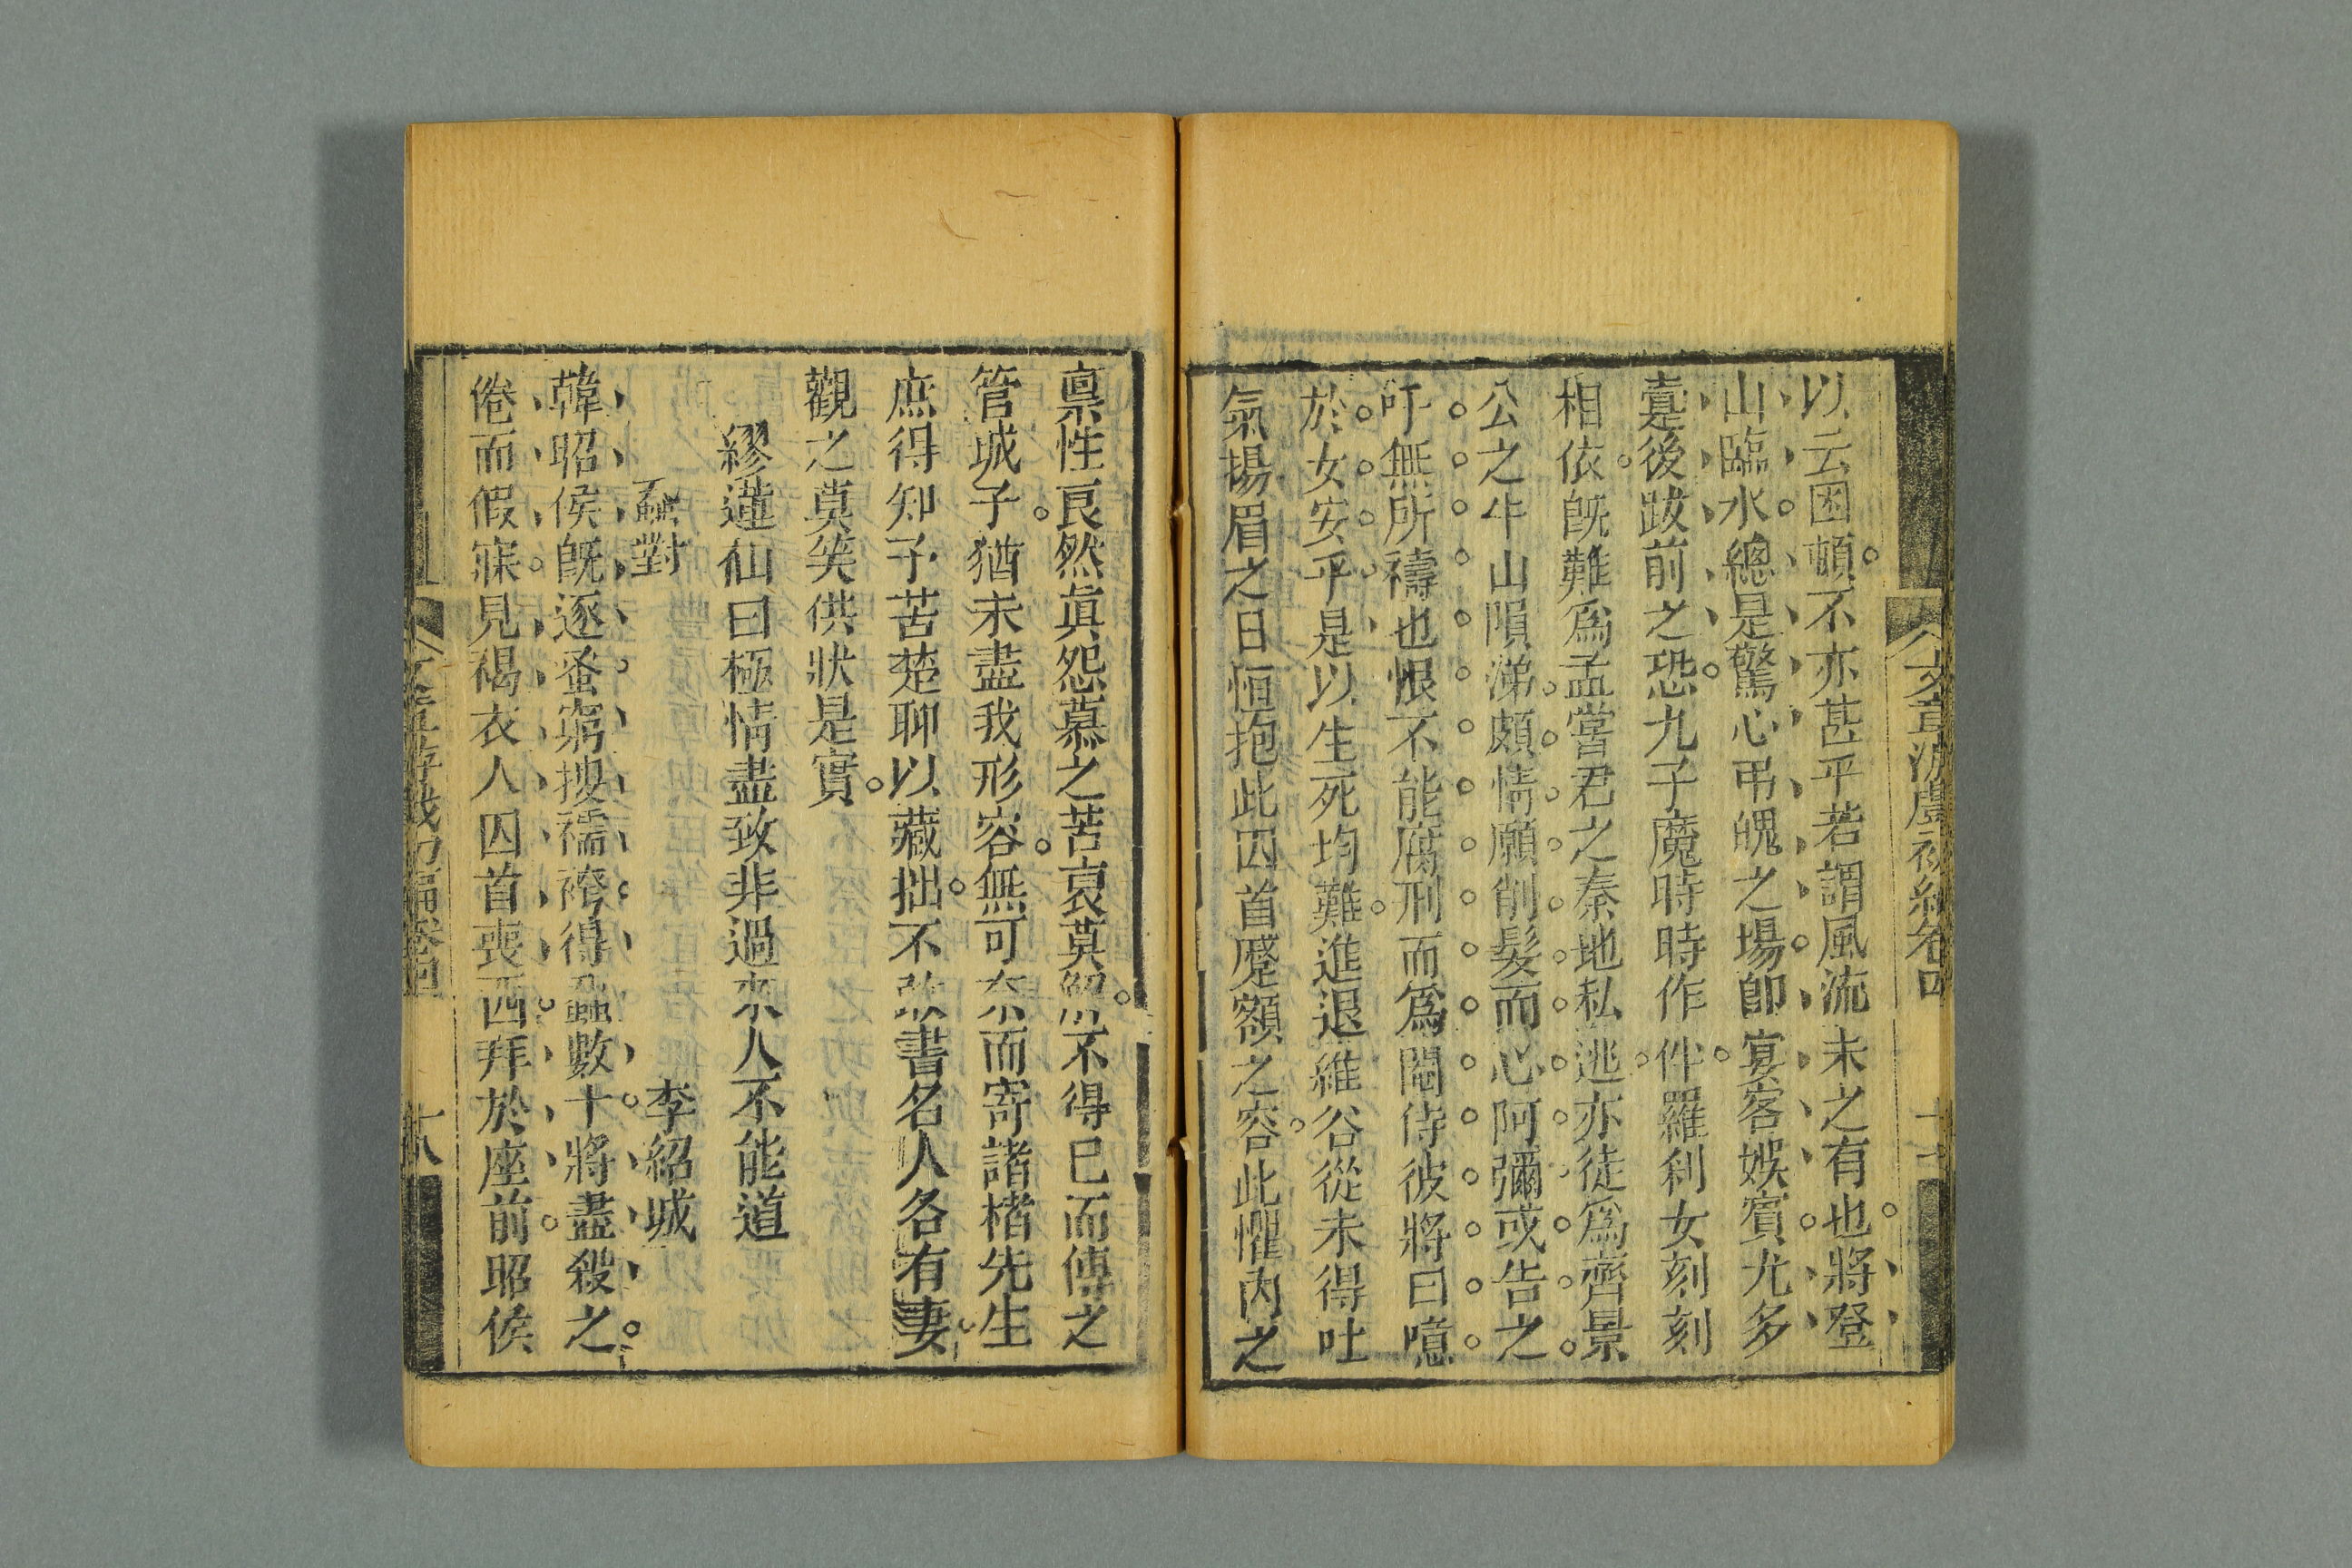 以云困頓不亦甚乎若謂風流未之有也將登
山臨水總是驚心弔魄之場卽宴客娛賓尤多
疐後跋前之恐九子魔時時作伴羅刹女刻刻
相依旣難爲孟嘗君之秦地私逃亦徒爲齊景
公之牛山隕涕頗情願削髮而心阿彌或告之
吁無所禱也恨不能腐刑而爲閹侍彼將曰噫
於女安乎是以生死均難進退維谷從未得吐
氣揚眉之日恒抱此囚首蹙額之容此懼內之
稟性良然眞怨慕之苦哀莫 不得已而傳之
管城子猶未盡我形容無可奈而寄諸楮先生
庶得知予苦楚聊以藏拙不敢書名人各有妻
觀之莫笑供狀是實
繆蓮仙曰極情盡致非過來人不能道
蝨對
李紹城
韓昭侯旣逐蚤窮搜襦袴得蝨數十將盡殺之
倦而假寐見褐衣人囚首喪面拜於座前昭侯
文章游戲初編卷四
十八